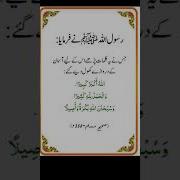 رسول اللہ ﷺ نے فرمایا:
جس نے یہ کلمات پڑھے اس کے لیے آسمان
کے دروازے کھول دیے گئے:
اَللّٰهُ أَكْبَرُ كَبِيرًا
وَالْحَمْدُ لِلّٰهِ كَثِيرًا
وَسُبْحَانَ اللّٰهِ بُكْرَةً وَّأَصِيلًا